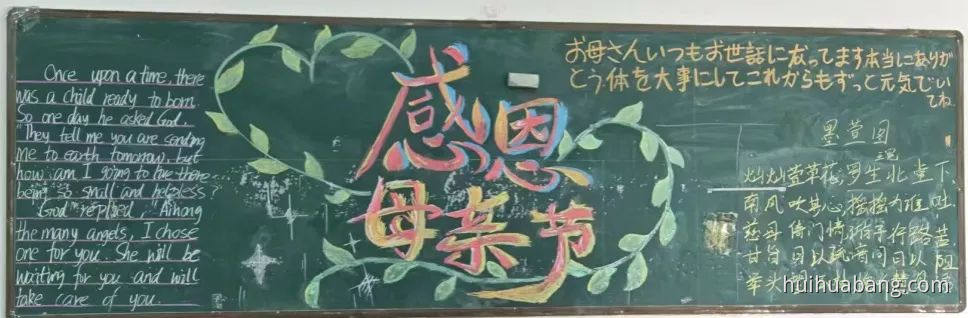 Once upon a time, there
was a child ready to born.
So one day he asked God.
"They tell me you are sending
me to earth tomorrow, but
how am I going to live there
being so small and helpless
God" replied, "Among
the many angels, I chose
one for you. She will be
waiting for you and will
take care of you.
感恩
母亲节
お母さんいつもお世話になってます本当にありが
とう体を大事にしてこれからもずっと元気でい
てね
墨萱图
王冕
灿灿萱草花,罗生北堂下
南风吹其心,摇摇为谁吐
慈母倚门情 游子行路苦
甘旨日以疏 音问日以阻
举头
huihuabang.com